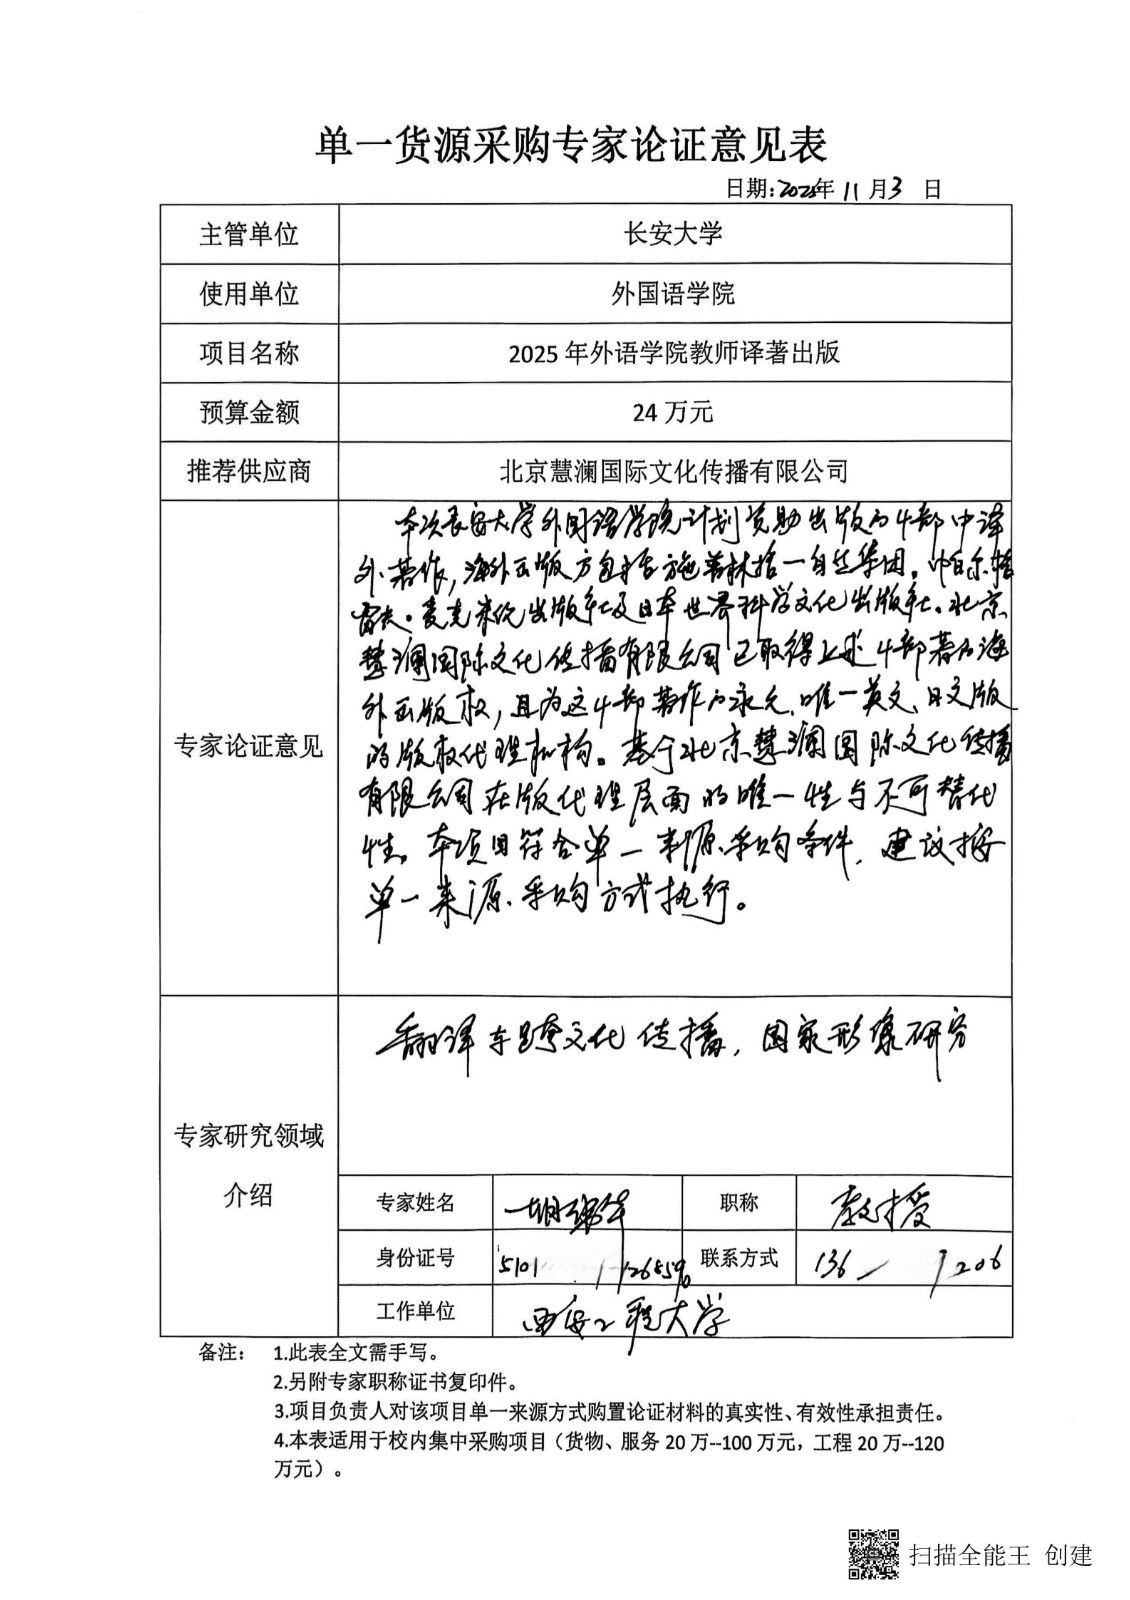 单一货源采购专家论证意见表
日期:2025年 11 月 3 日
主管单位 长安大学
使用单位 外国语学院
项目名称 2025 年外语学院教师译著出版
预算金额 24 万元
推荐供应商 北京慧澜国际文化传播有限公司
专家论证意见
本次长安大学外国语学院计划资助出版的4部中译
外著作，海外出版方包括施普林格—自然集团、帕尔格
雷夫·麦克米伦出版社及日本世界科学文化出版社。北京
慧澜国际文化传播有限公司已取得上述4部著作海
外出版权，且为这4部著作的永久、唯一英文、日文版
的版权代理机构。基于北京慧澜国际文化传播
有限公司在版代理层面的唯一性与不可替代
性，本项目符合单一来源采购条件，建议按
单一来源采购方式执行。
专家研究领域
介绍
翻译与跨文化传播，国家形象研究
专家姓名 职称 教授
身份证号 5101 联系方式 136 206
工作单位 西安工程大学
备注： 1.此表全文需手写。
2.另附专家职称证书复印件。
3.项目负责人对该项目单一来源方式购置论证材料的真实性、有效性承担责任。
4.本表适用于校内集中采购项目（货物、服务 20 万--100 万元，工程 20 万--120
万元）。
扫描全能王 创建